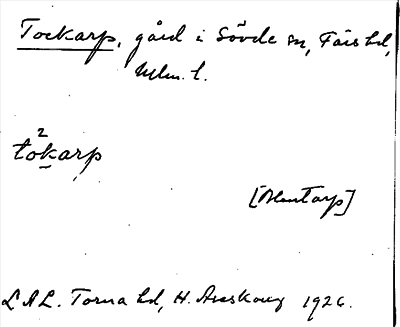 Tockarp, gård i Sövde sn, Färs hd,
Mlm. l.
to²karp
[Blentarp]
LAL. Torna hd, H. Areskoug 1926.